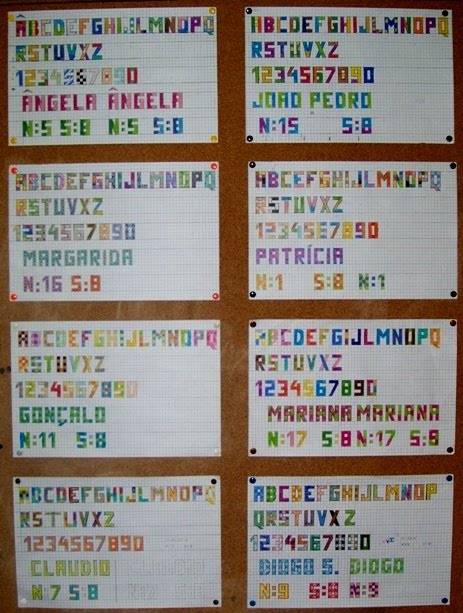 ÂBCDEFGHIJLMNOPQ
RSTUVXZ
1234567890
ÂNGELA ÂNGELA
N:5 S:8 N:5 S:8
ABCDEFGHIJLMNOPQ
RSTUVXZ
1234567890
JOAO PEDRO
N:15 S:8
ABCDEFGHIJLMNOPQ
RSTUVXZ
1234567890
MARGARIDA
N:16 S:8
ABCDEFGHIJLMNOPQ
RSTUVXZ
1234567890
PATRÍCIA
N:1 S:8 N:1
ABCDEFGHIJLMNOPQ
RSTUVXZ
1234567890
GONÇALO
N:11 S:8
ABCDEFGHIJLMNOPQ
RSTUVXZ
1234567890
MARIANA MARIANA
N:17 S:8 N:17 S:8
ABCDEFGHIJLMNOPQ
RSTUVXZ
1234567890
CLAUDIO CLAUDIO
N:7 S:8
ABCDEFGHIJLMNOP
QRSTUVXZ
1234567890
DIOGO S. DIOGO
N:9 S:8 N:9